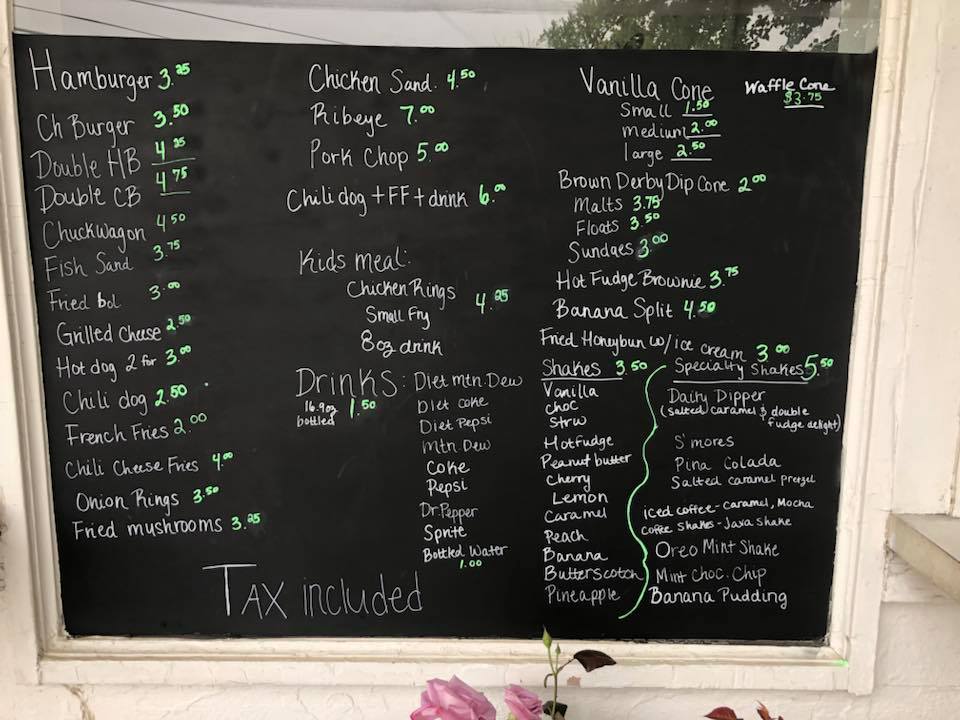 Hamburger 3.25
Ch Burger 3.50
Double HB 4.25
Double CB 4.75
Chuckwagon 4.50
Fish Sand 3.75
Fried bol 3.00
Grilled Cheese 2.50
Hot dog 2 for 3.00
Chili dog 2.50
French Fries 2.00
Chili Cheese Fries 4.00
Onion Rings 3.50
Fried mushrooms 3.25
Chicken Sand. 4.50
Ribeye 7.00
Pork Chop 5.00
Chili dog + FF + drink 6.00
Kids meal:
Chicken Rings
Small Fry 4.25
8oz drink
Drinks: Diet mtn. Dew
16.9oz bottled 1.50
Diet Coke
Diet Pepsi
Mtn. Dew
Coke
Pepsi
Dr. Pepper
Sprite
Bottled Water
1.00
Vanilla Cone
Small 1.50
medium 2.00
large 2.50
Waffle Cone
$3.75
Brown Derby Dip Cone 2.00
Malts 3.75
Floats 3.50
Sundaes 3.00
Hot Fudge Brownie 3.75
Banana Split 4.50
Fried Honeybun w/ ice cream 3.00
Shakes 3.50
Vanilla
Choc
Strw
Hotfudge
Peanut butter
Cherry
Lemon
Caramel
Peach
Banana
Butterscotch
Pineapple
Specialty Shakes 5.50
Dairy Dipper
(salted caramel & double
fudge delight)
S'mores
Pina Colada
Salted caramel pretzel
iced coffee - caramel, Mocha
Coffee shakes - Java Shake
Oreo Mint Shake
Mint Choc. Chip
Banana Pudding
Tax included